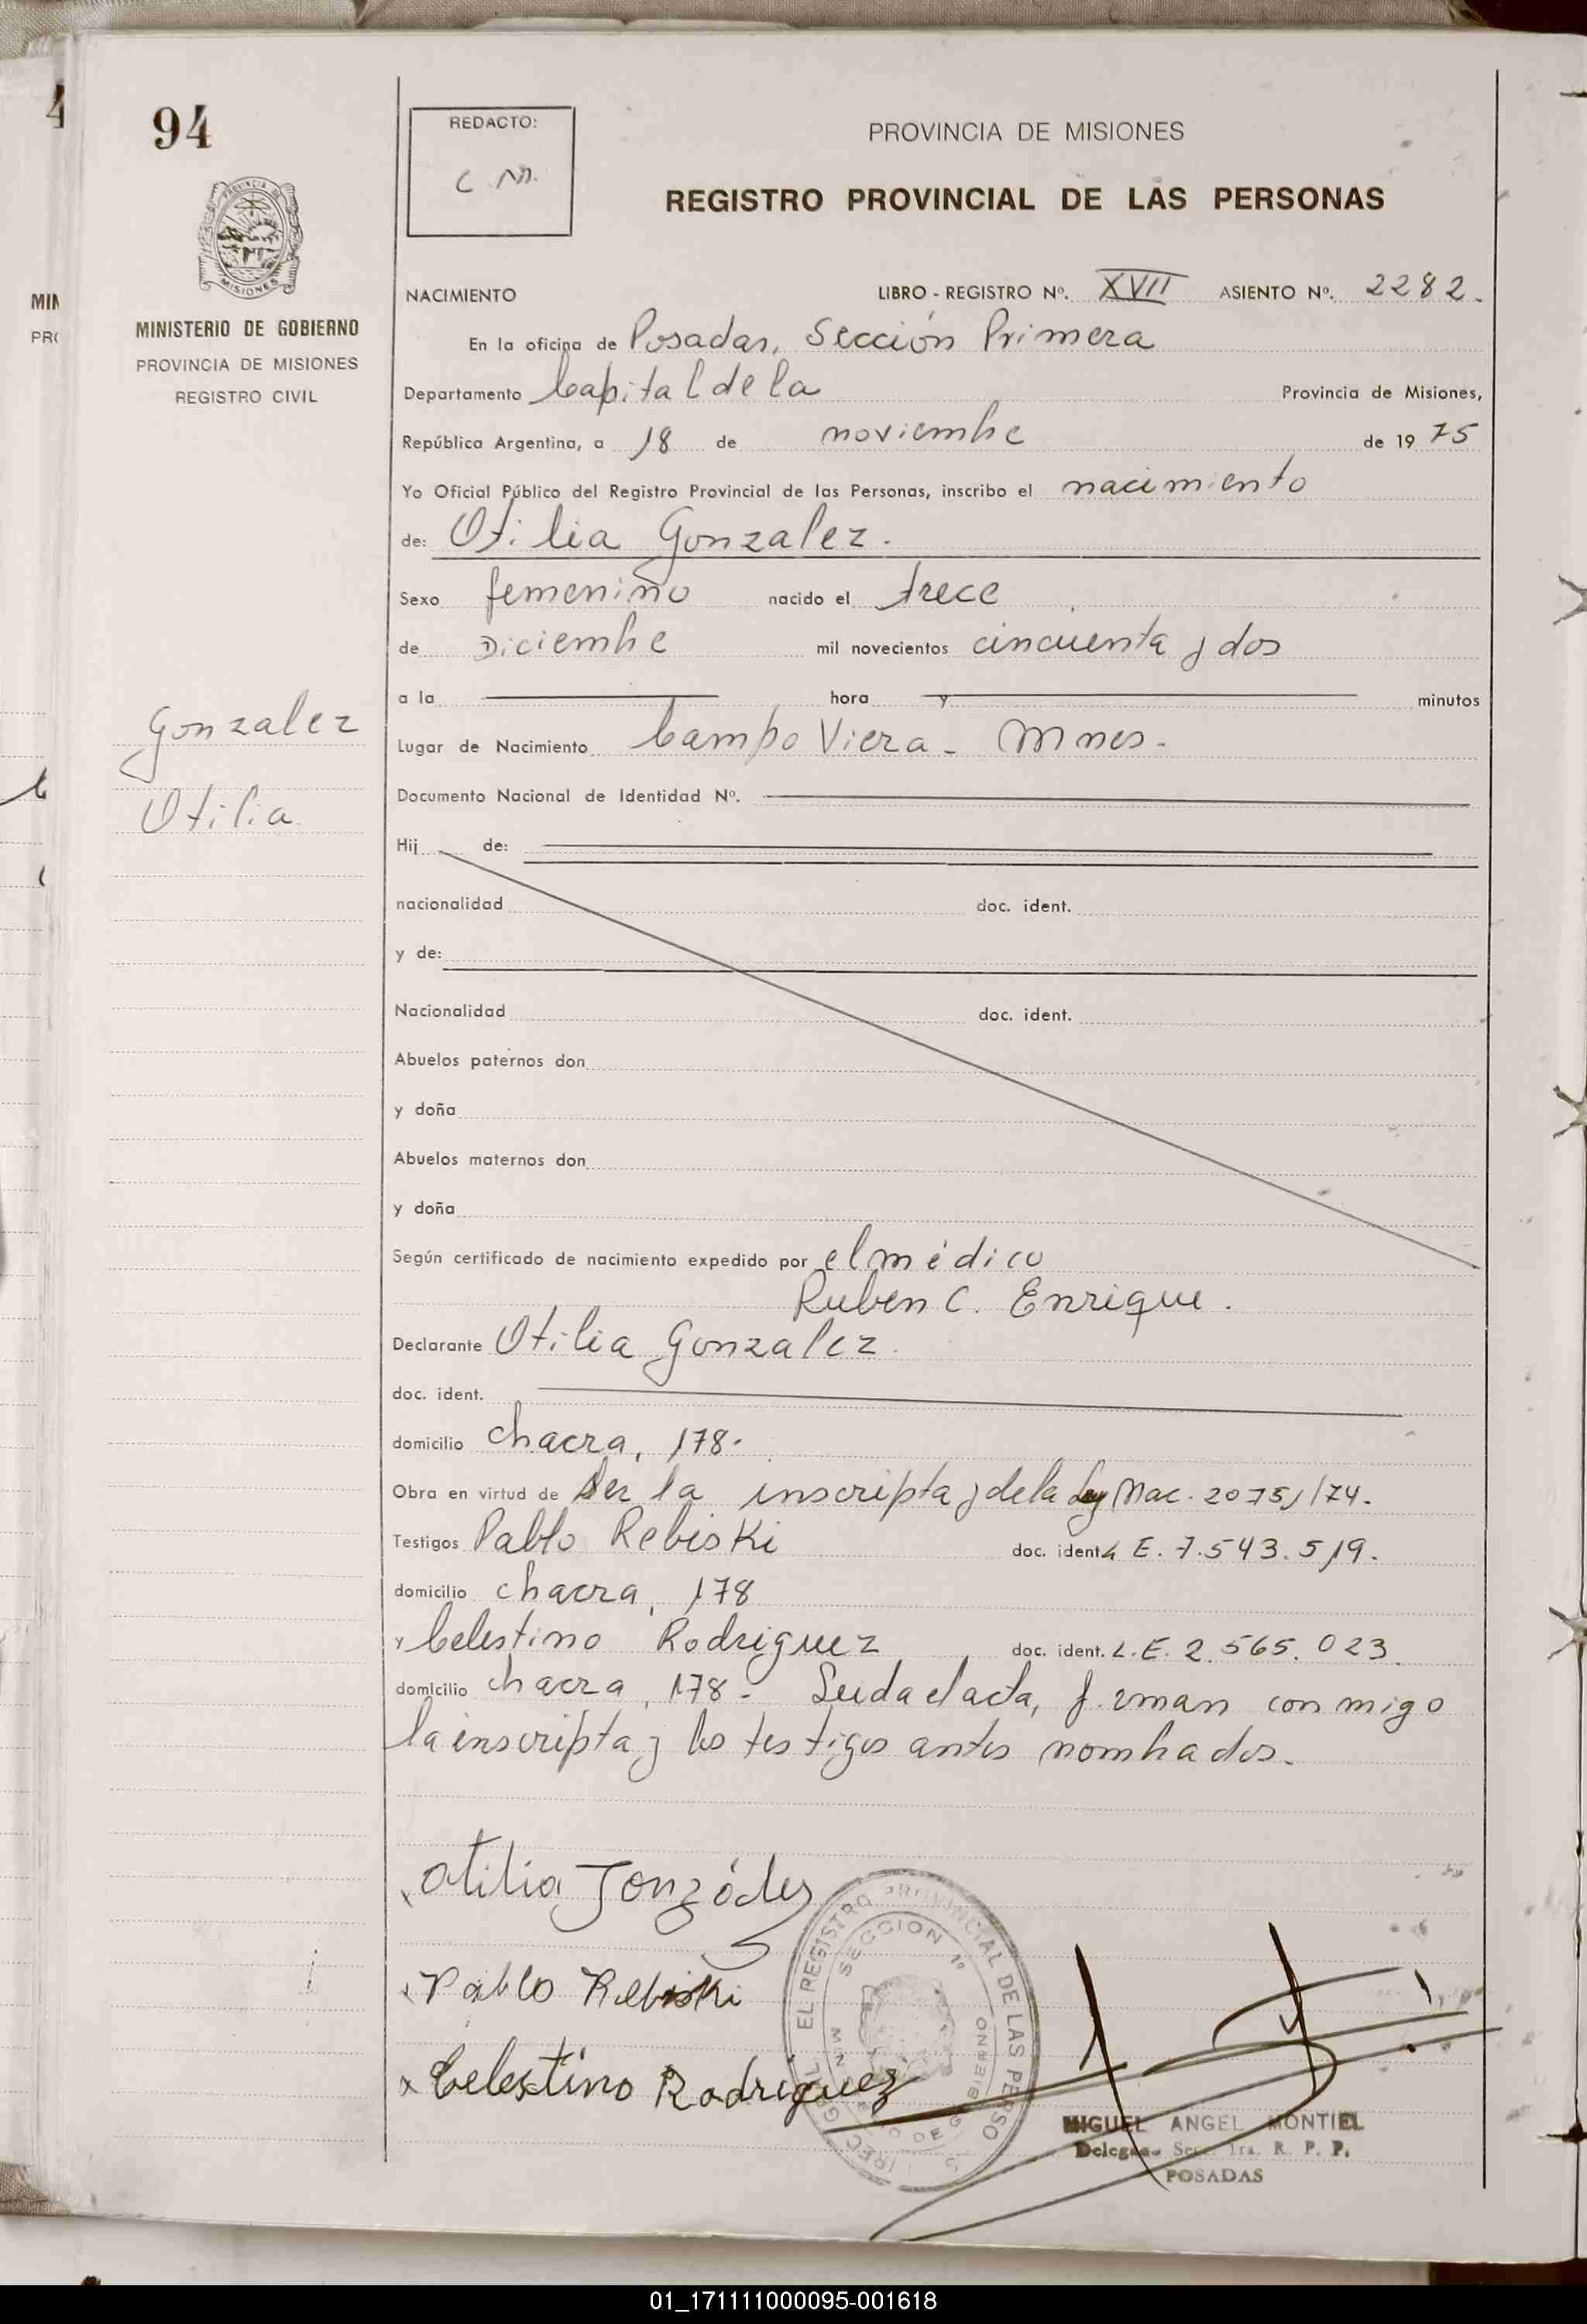 94
REDACTO:
C.M.
PROVINCIA DE MISIONES
REGISTRO PROVINCIAL DE LAS PERSONAS
MINISTERIO DE GOBIERNO
PROVINCIA DE MISIONES
REGISTRO CIVIL
NACIMIENTO LIBRO - REGISTRO Nº. XVII ASIENTO Nº. 2282.
En la oficina de Posadas, Sección Primera
Departamento Capital de la Provincia de Misiones,
República Argentina, a 18 de noviembre de 1975
Yo Oficial Público del Registro Provincial de las Personas, inscribo el nacimiento
de: Otilia Gonzalez.
Sexo femenino nacido el trece
de Diciembre mil novecientos cincuenta y dos
a la hora y minutos
Gonzalez
Otilia
Lugar de Nacimiento Campo Viera - Mnes.
Documento Nacional de Identidad Nº.
Hij de:
nacionalidad doc. ident.
y de:
Nacionalidad doc. ident.
Abuelos paternos don
y doña
Abuelos maternos don
y doña
Según certificado de nacimiento expedido por el médico
Ruben C. Enrique.
Declarante Otilia Gonzalez.
doc. ident.
domicilio chacra, 178.
Obra en virtud de ser la inscripta y de la Ley Nac. 20751/74.
Testigos Pablo Rebiski doc. ident. L E. 7.543.519.
domicilio chacra, 178
y Celestino Rodriguez doc. ident. L.E. 2.565.023.
domicilio chacra, 178 - Leida el acta, firman conmigo
la inscripta y los testigos antes nombrados.
Otilia Gonzáles
Pablo Rebiski
x Celestino Rodriguez
EL REGISTRO PROVINCIAL DE LAS PERSO
SECCION 1º
MIGUEL ANGEL MONTIEL
Delegado Secc. 1ra. R. P. P.
POSADAS
01_171111000095-001618